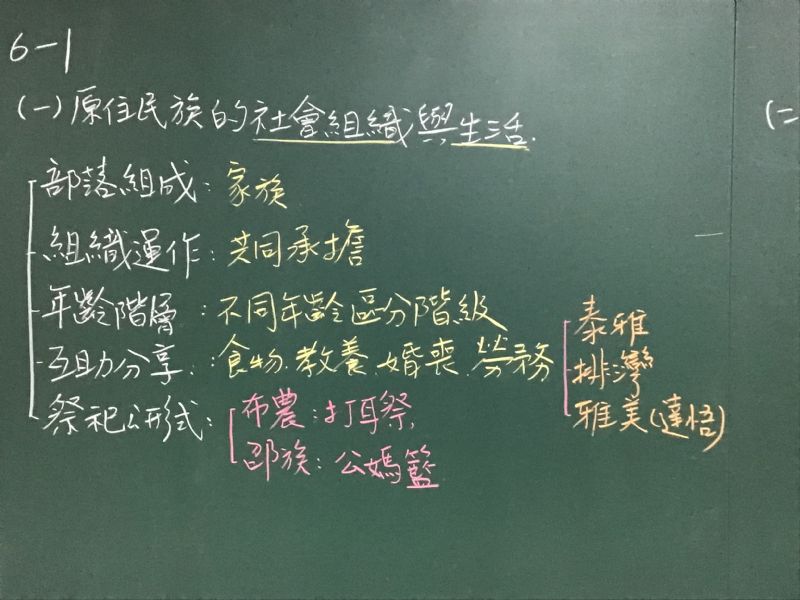 6-1
(一)原住民族的社會組織與生活.
部落組成:家族
組織運作:共同承擔
年齡階層:不同年齡區分階級
互助分享:食物.教養.婚喪.勞務
泰雅
排灣
雅美(達悟)
祭祀公形式:
布農:打耳祭,
邵族:公媽籃
(二